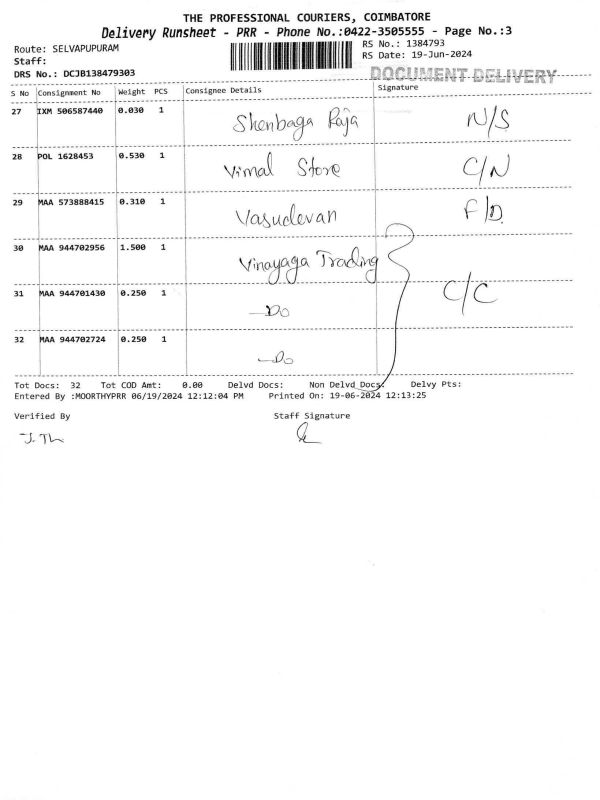 THE PROFESSIONAL COURIERS, COIMBATORE
Delivery Runsheet - PRR - Phone No.:0422-3505555 - Page No.:3
Route: SELVAPUPURAM RS No.: 1384793
Staff: RS Date: 19-Jun-2024
DRS No.: DCJB138479303 DOCUMENT DELIVERY
S No Consignment No Weight PCS Consignee Details Signature
27 IXM 506587440 0.030 1 Shenbaga Raja N/S
28 POL 1628453 0.530 1 Vimal Store C/N
29 MAA 573888415 0.310 1 Vasudevan F/D.
30 MAA 944702956 1.500 1 Vinayaga Trading
31 MAA 944701430 0.250 1 —Do C/C
32 MAA 944702724 0.250 1 —Do
Tot Docs: 32 Tot COD Amt: 0.00 Delvd Docs: Non Delvd Docs: Delvy Pts:
Entered By :MOORTHYPRR 06/19/2024 12:12:04 PM Printed On: 19-06-2024 12:13:25
Verified By Staff Signature